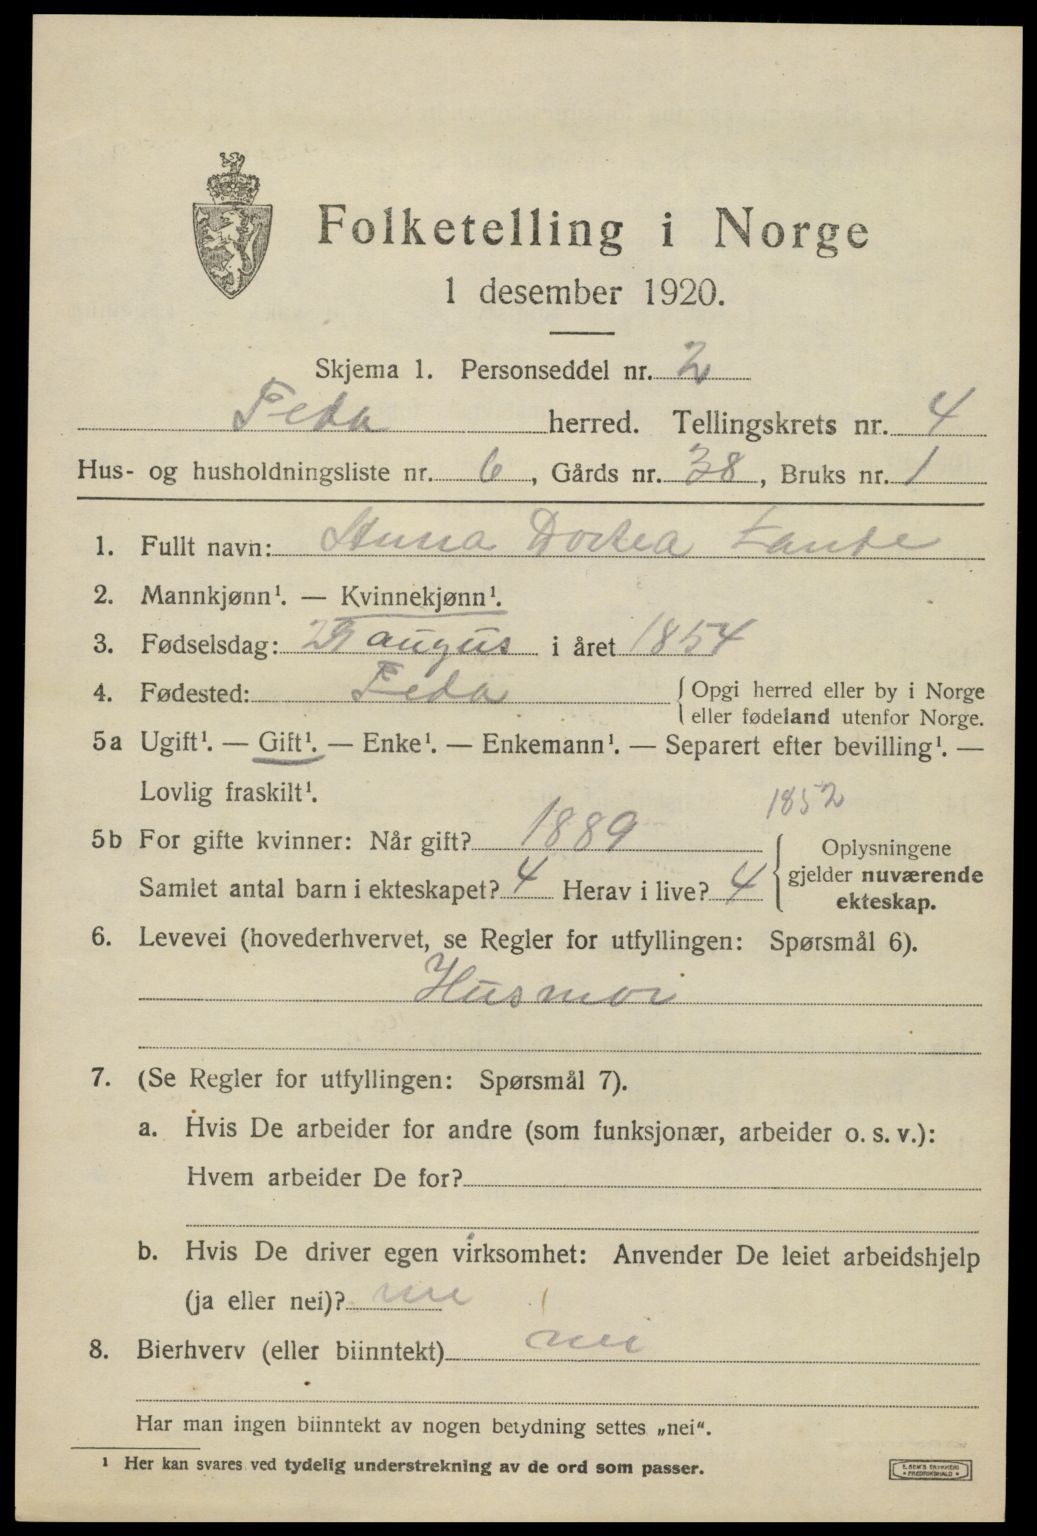 Folketelling i Norge
1 desember 1920.
Skjema 1. Personseddel nr. 2
Feda herred. Tellingskrets nr. 4
Hus- og husholdningsliste nr. 6, Gårds nr. 38, Bruks nr. 1
1. Fullt navn: Anna Dortea
2. Mannkjønn¹. — Kvinnekjønn¹.
3. Fødselsdag: 29 augus i året 1854
4. Fødested: Feda
{ Opgi herred eller by i Norge
eller fødeland utenfor Norge.
5a Ugift¹. — Gift¹. — Enke¹. — Enkemann¹. — Separert efter bevilling¹. —
Lovlig fraskilt¹.
1852
5b For gifte kvinner: Når gift? 1889
Samlet antal barn i ekteskapet? 4 Herav i live? 4
{ Oplysningene
gjelder nuværende
ekteskap.
6. Levevei (hovederhvervet, se Regler for utfyllingen: Spørsmål 6).
Husmor
7. (Se Regler for utfyllingen: Spørsmål 7).
a. Hvis De arbeider for andre (som funksjonær, arbeider o. s. v.):
Hvem arbeider De for?
b. Hvis De driver egen virksomhet: Anvender De leiet arbeidshjelp
(ja eller nei)? nei
8. Bierhverv (eller biinntekt) nei
Har man ingen biinntekt av nogen betydning settes „nei“.
¹ Her kan svares ved tydelig understrekning av de ord som passer.
E. SEM'S TRYKKERI
FREDRIKSHALD